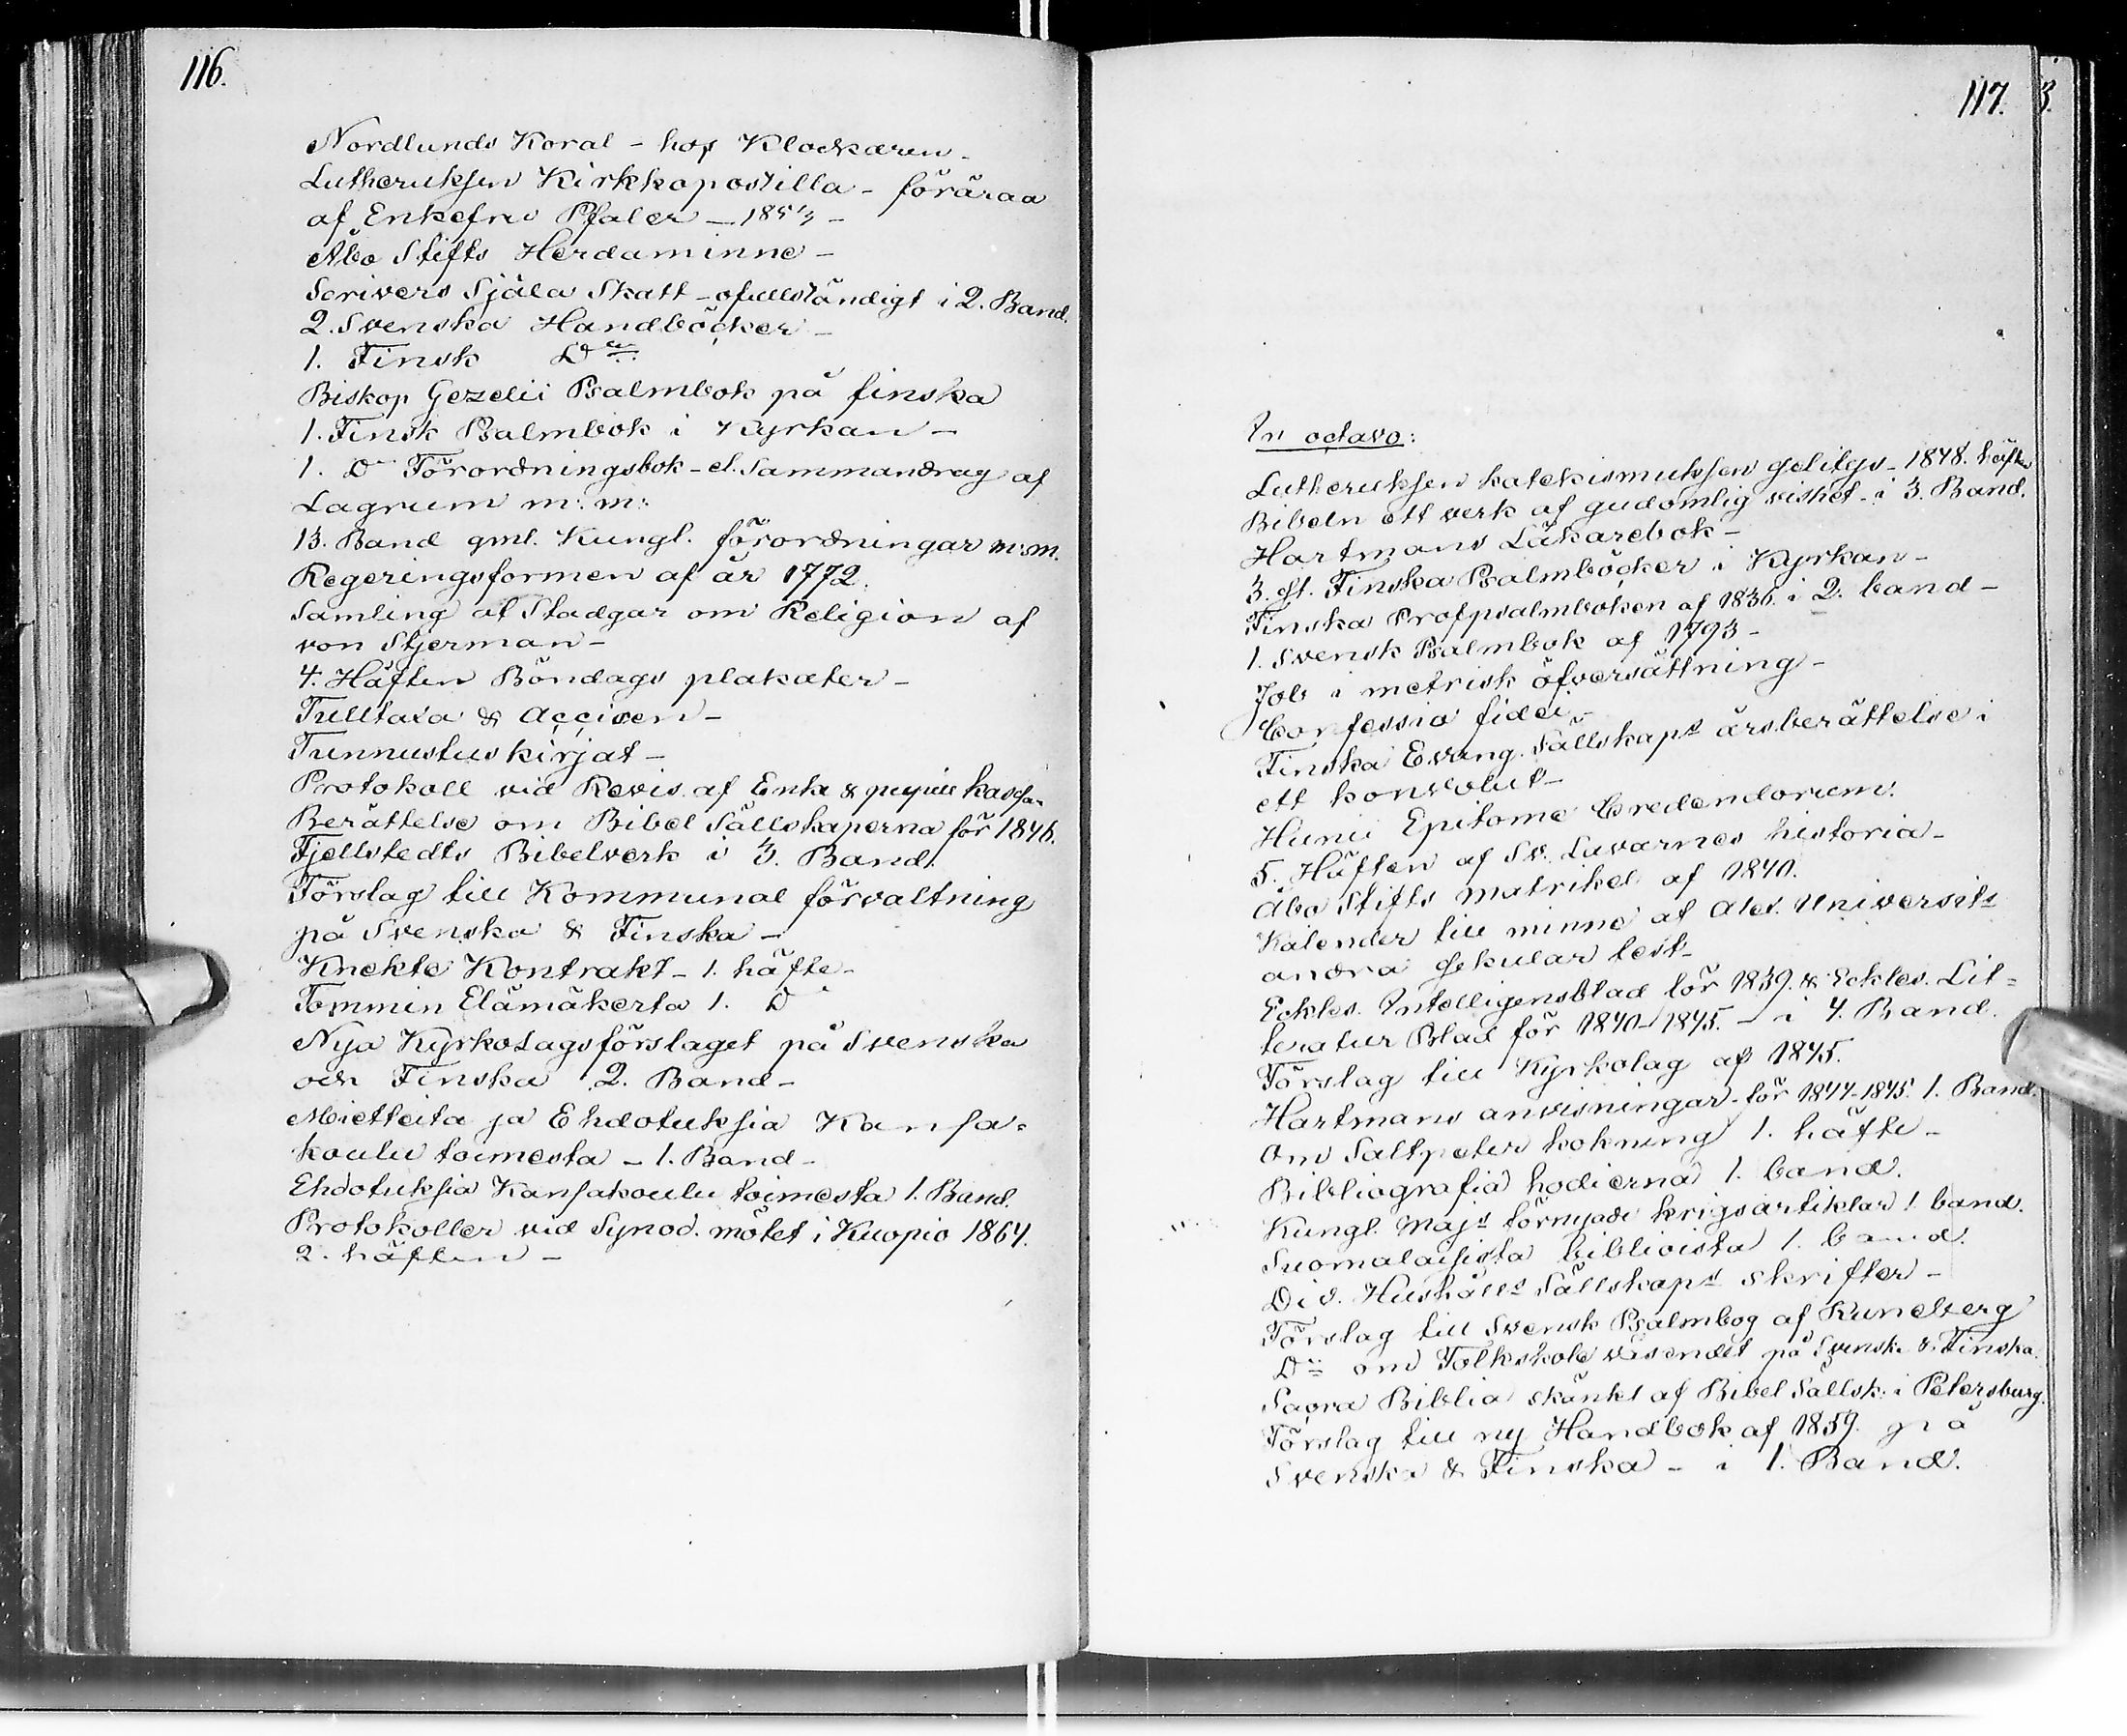 116.
Nordlunds Koral - hos Klockaren -
Lutheruksen Kirkkopostilla - föräraa
af Enkefru Pfaler - 18
Åbo Stifts Herdaminne -
Scrivers Själa Skatt - ofullständigt i 2. Band.
2. Svenska Handböcker -
1. Finsk Do
Biskop Gezelii Psalmbok på finska
1. Finsk Psalmbok i Kyrkan -
1. Do Förordningsbok - el. Sammandrag af
Lagrum m: m:
13. Band gml. Kungl. förordningar m: m.
Regeringsformen af år 1772.
Samling af Stadgar om Religion af
von Stjerman -
4. Häften Böndags plakater -
Tulltaxa & Accisen -
Tunnustuskirjat -
Protokoll vid Revis. af Enke & pupill kassa -
Berättelse om Bibel Sällskaperna för 1846.
Fjellstedts Bibelverk i 3. Band.
Förslag till Kommunal förvaltning
på Svenska & Finska -
Knekte Kontrakt - 1. häfte -
Tommin Elämäkerta 1. Do
Nya KyrkoLagsförslaget på Svenska
och Finska 2. Band -
Mietteita ja Ehdotuksia Kansa-
koulu toimesta - 1. Band -
Ehdotuksia Kansakoulu toimesta 1. Band.
Protokoller vid Synod. mötet i Kuopio 1864.
2. häften -
117.
3.
In octavo:
Lutheruksen katekismuksen selitys - 1848. häfte
Bibeln ett verk af gudomlig vishet - i 3. Band.
Hartmans Läkarebok -
3. st. Finska Psalmböcker i Kyrkan -
Finska Profpsalmboken af 1836. i 2. band -
1. Svensk Psalmbok af 1793 -
Job i metrisk öfversättning -
Confessio fidei -
Finska Evang. Sällskaps årsberättelse i
ett konvolut -
Hunii Epitome Credendorum.
5. Häften af Sv. Lavarnes historia -
Åbo Stifts matrikel af 1840.
Kalender till minne af Alex. Universits
andra sekular fest -
Eckles. Intelligensblad för 1839. & Eckles. Lit-
teratur Blad för 1840 - 1845. - i 4. Band.
Förslag till Kyrkolag af 1845.
Hartmans anvisningar för 1844-1845. 1. Band.
Om Saltpeter kokning 1. häfte -
Bibliografia hodierna 1. band.
Kungl. Majs förnyade krigsartiklar 1. band.
Suomalaisista biblioista 1. band.
Div. Hushålls Sällskaps skrifter -
Förslag till Svensk Psalmbog af Runeberg
Do om Folkskole väsendet på Svenska & Finska.
Sacra Biblia skänkt af Bibel Sällsk. i Petersburg.
Förslag till ny Handbok af 1859. på
Svenska & Finska - i 1. Band.